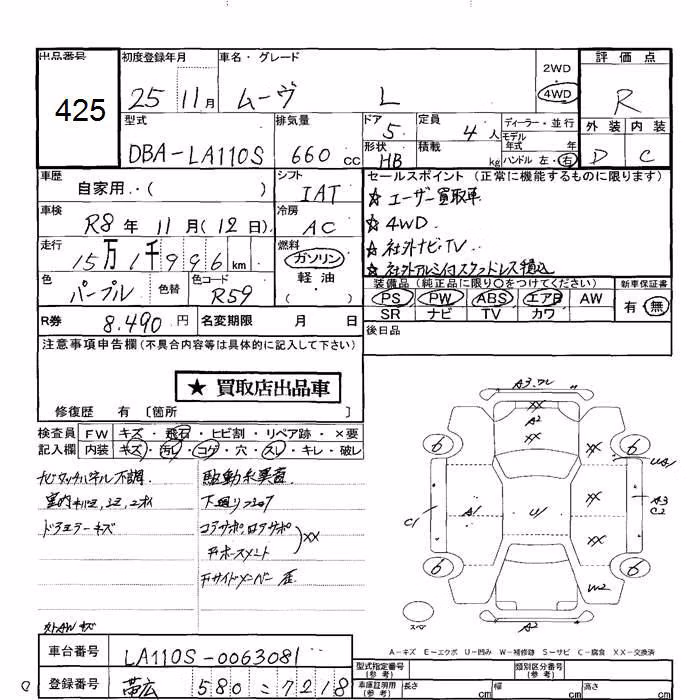 出品番号 425
初度登録年月 25 11月
車名・グレード ムーヴ L
2WD
4WD
評価点 R
外装 D 内装 C
型式 DBA-LA110S
排気量 660 cc
ドア 5
定員 4人
形状 HB
積載 kg
ディーラー・並行
モデル年式 年
ハンドル 左・右
車歴 自家用・( )
シフト IAT
車検 R8年 11月(12日)
冷房 AC
走行 15万1千996km
燃料 ガソリン
軽油
( )
色 パープル 色替
色コード R59
R券 8,490円
名変期限 月 日
セールスポイント(正常に機能するものに限ります)
☆ユーザー買取車
☆4WD
☆社外ナビ・TV
☆社外アルミ付スタッドレス積込
装備品(純正品に限り○をつけてください)
PS PW ABS エアB AW
SR ナビ TV カワ
新車保証書
有・無
後日品
注意事項申告欄(不具合内容等は具体的に記入して下さい)
★ 買取店出品車
修復歴 有〔箇所 〕
検査員記入欄
FW キズ・飛石・ヒビ割・リペア跡・×要
内装 キズ・汚レ・コゲ・穴・スレ・キレ・破レ
ナビタッチパネル不調
ドアミラーキズ
駆動系異音
下廻り
コアサポ,ロアサポ
XX
Fサイドメンバー歪
外AWキズ
A3.
XX
A2
6
6
XX
XX
XX
A1
U1
C1
A3
C2
6
6
A2
スペ
A-キズ E-エクボ U-凹み W-補修跡 S-サビ C-腐食 XX-交換済
車台番号 LA110S-0063081
登録番号 帯広 580 7218
型式指定番号(参考)
類別区分番号(参考)
車庫証明用(参考) 長さ cm 幅 cm 高さ cm